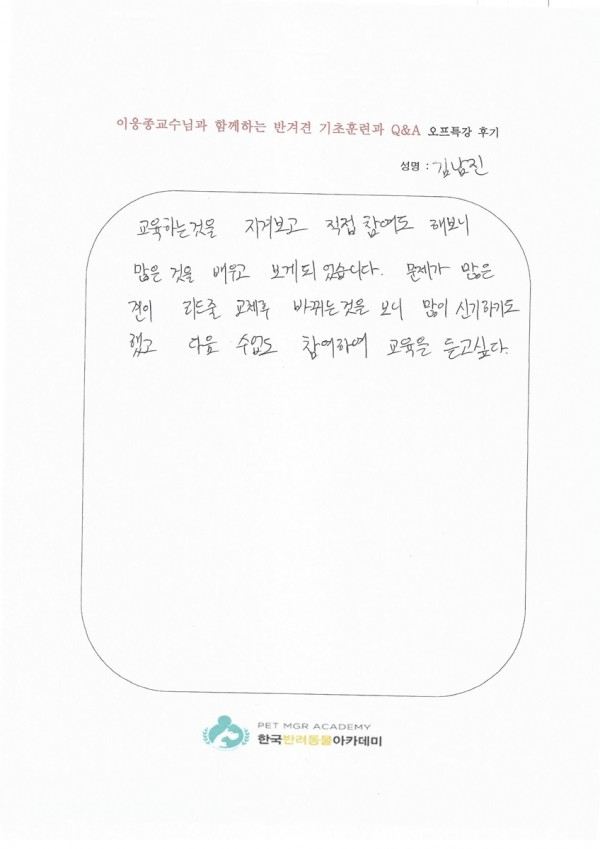 이웅종교수님과 함께하는 반겨견 기초훈련과 Q&A 오프특강 후기
성명 : 김남진
교육하는것을 지켜보고 직접 참여도 해보니
많은 것을 배우고 보게되었습니다. 문제가 많은
견이 리드줄 교체후 바뀌는것을 보니 많이 신기하기도
했고 다음 수업도 참여하여 교육을 듣고싶다.
PET MGR ACADEMY
한국반려동물아카데미